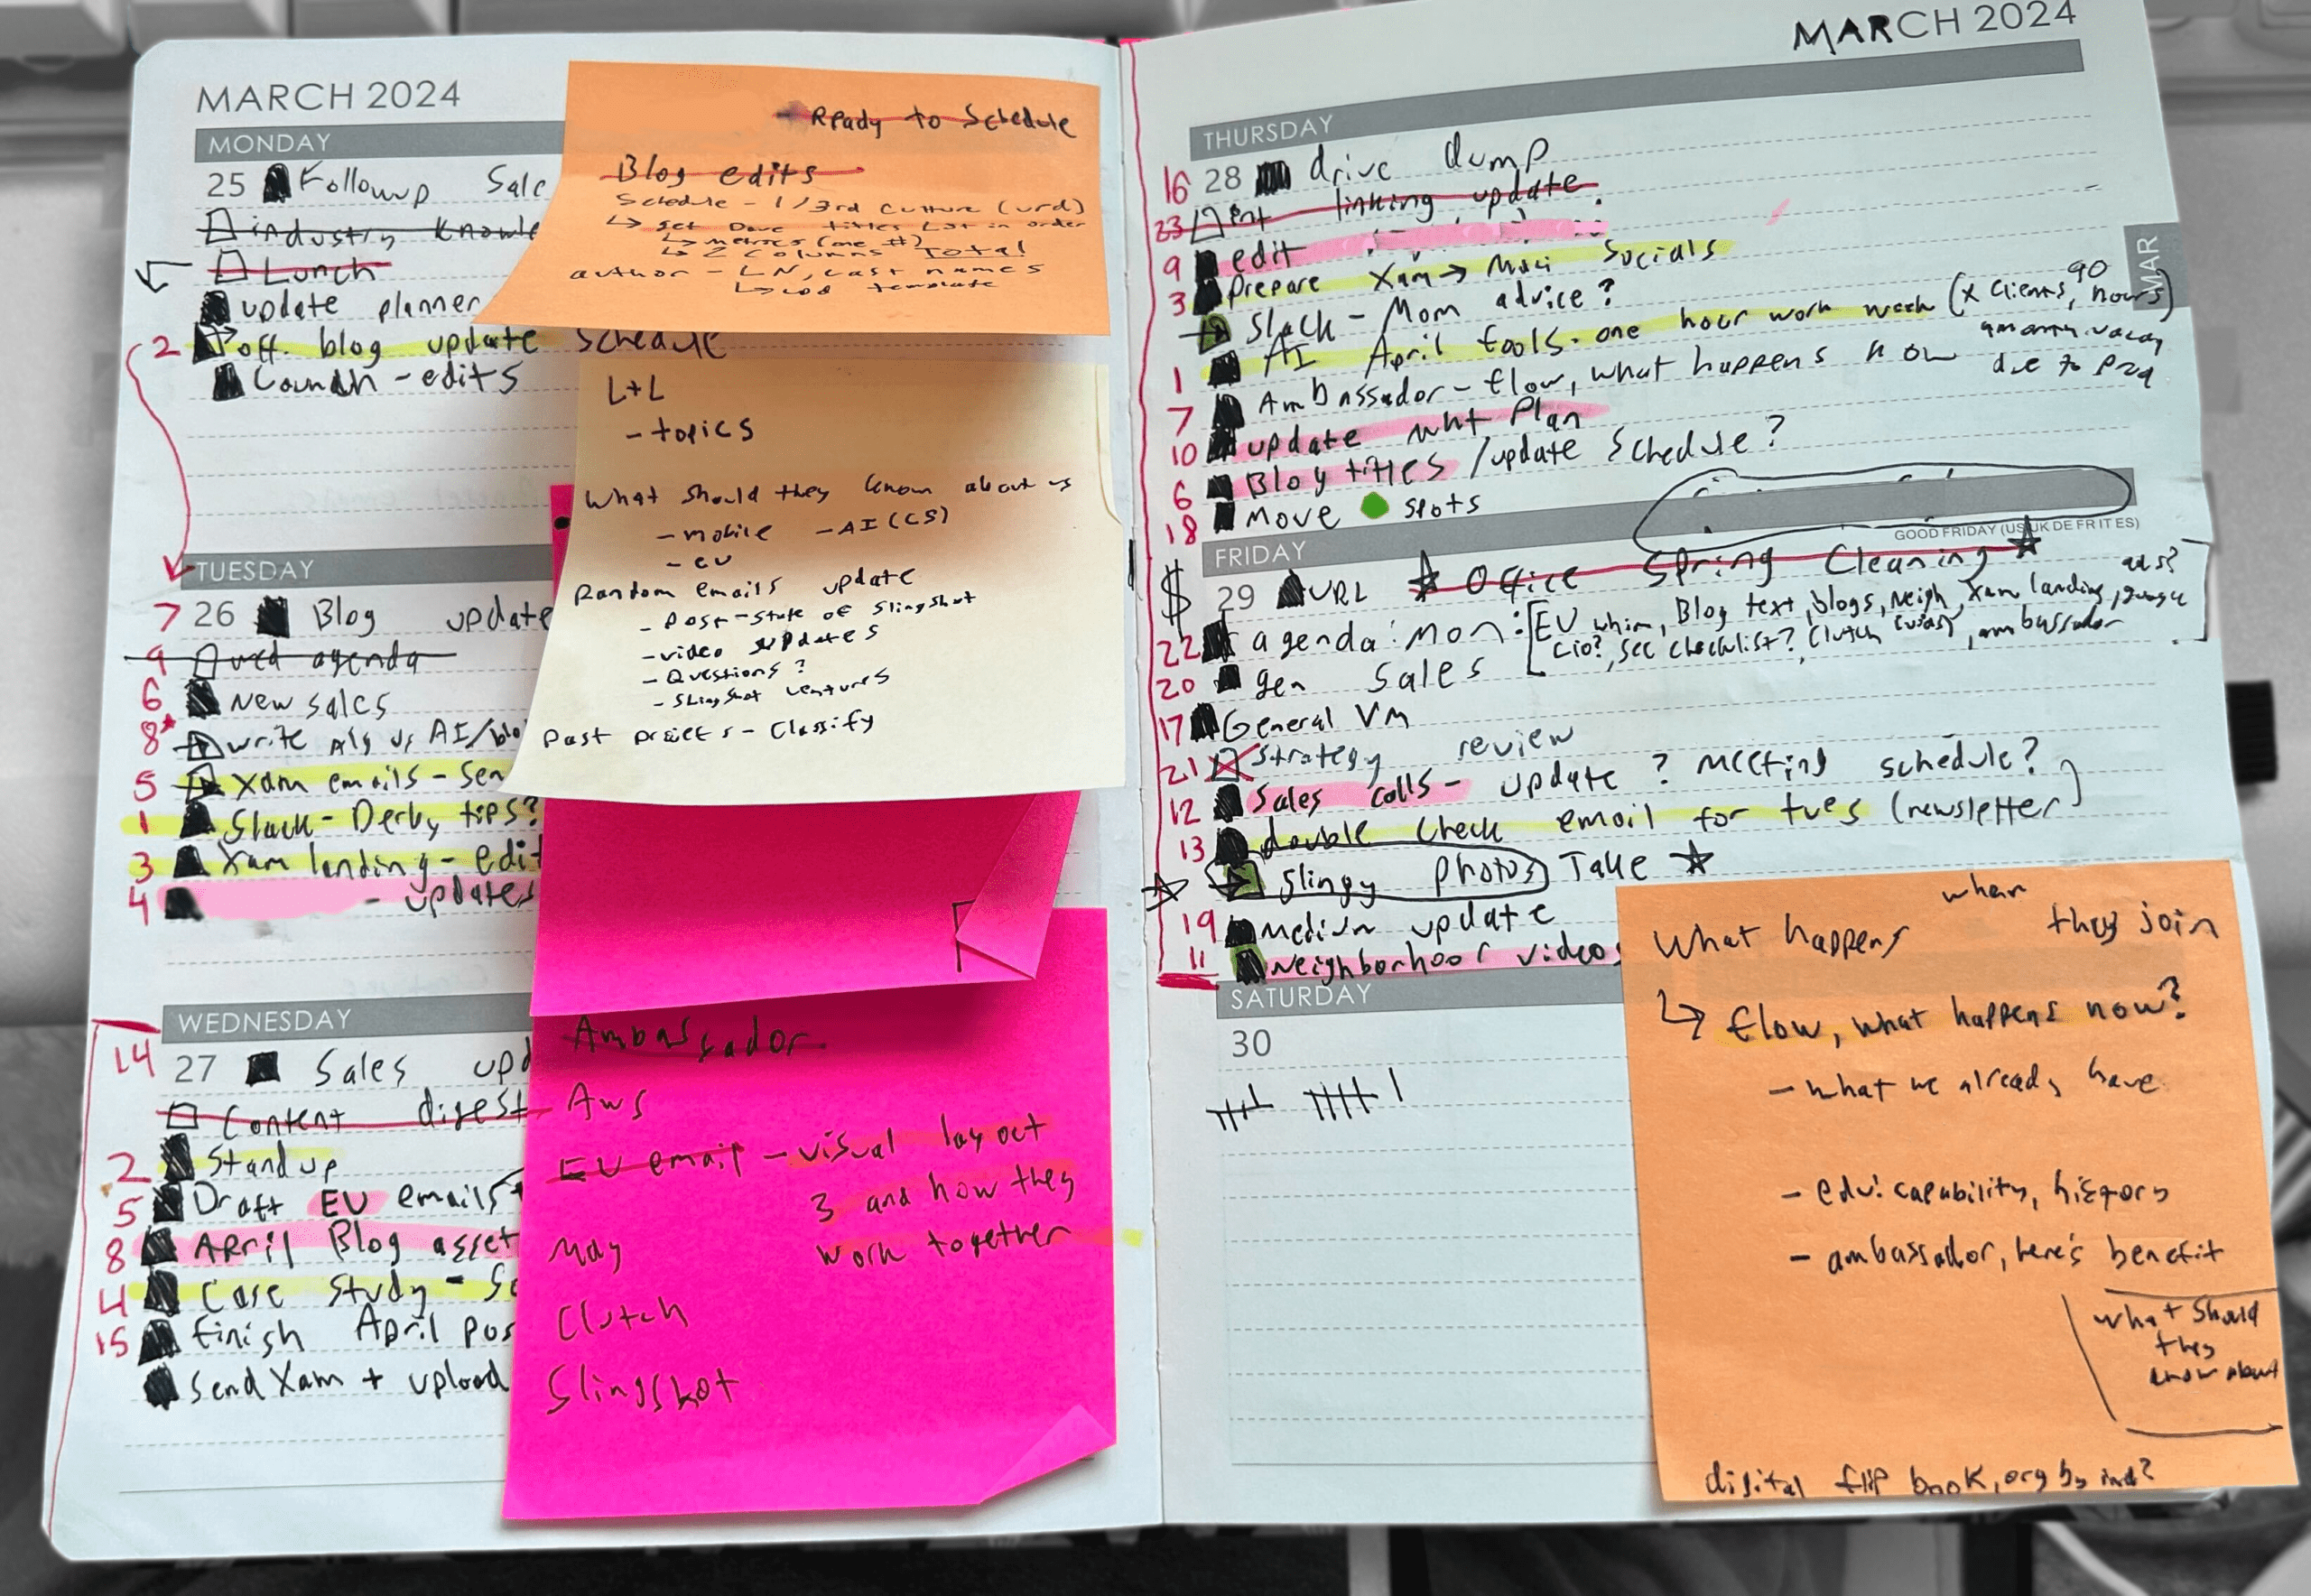 MARCH 2024
MONDAY
25 Followup Sale
industry knowle
Lunch
update planner
2 off. blog update schedule
Launch - edits
TUESDAY
7 26 Blog update
9 agenda
6 New sales
8* write Alg vs AI/blo
5 Xam emails - sen
1 Slack - Derby tips?
3 Xam landing - edit
4 - updates
WEDNESDAY
14 27 Sales upd
Content digest
2 Stand up
5 Draft EU emails
8 April Blog asset
4 Case Study - Sc
15 finish April pos
Send Xam + upload
Ready to Schedule
Blog edits
Schedule - 1/3rd culture (urd)
↳ get Dave titles list in order
↳ metrics (one #)
↳ 2 columns Total
author - LN, last names
↳ template
L+L
- topics
What should they know about us
- mobile - AI (CS)
- EU
Random emails update
- Post - State of Slingshot
- video updates
- Questions?
- Slingshot ventures
Past projects - Classify
Ambassador
Aws
EU email - visual layout
3 and how they
work together
May
Clutch
Slingshot
MARCH 2024
MAR
THURSDAY
16 28 drive dump
23 int linking update
9 edit
3 Prepare Xam → Socials
Slack - Mom advice?
1 AI April fools - one hour work week (x clients, 90 hours)
due to prod
7 Ambassador - flow, what happens now
10 update mkt Plan
6 Blog titles / update schedule?
18 move spots
GOOD FRIDAY (US UK DE FR IT ES)
FRIDAY
$ 29 URL ☆ Office Spring Cleaning ☆
22 agenda: mon: [EU whim, Blog text, blogs, neigh, Xam landing, google ads?
cio?, sec checklist?, Clutch, ambassador
20 gen sales
17 General VM
21 Strategy review
12 Sales calls - update? meeting schedule?
13 double check email for tues (newsletter)
☆ Slingy photos Take ☆
19 medium update
11 Neighborhoor videos
SATURDAY
30
What happens when they join
↳ flow, what happens now?
- what we already have
- edu: capability, history
- ambassador, here's benefit
what should
they
know about
digital flip book, org by ind?